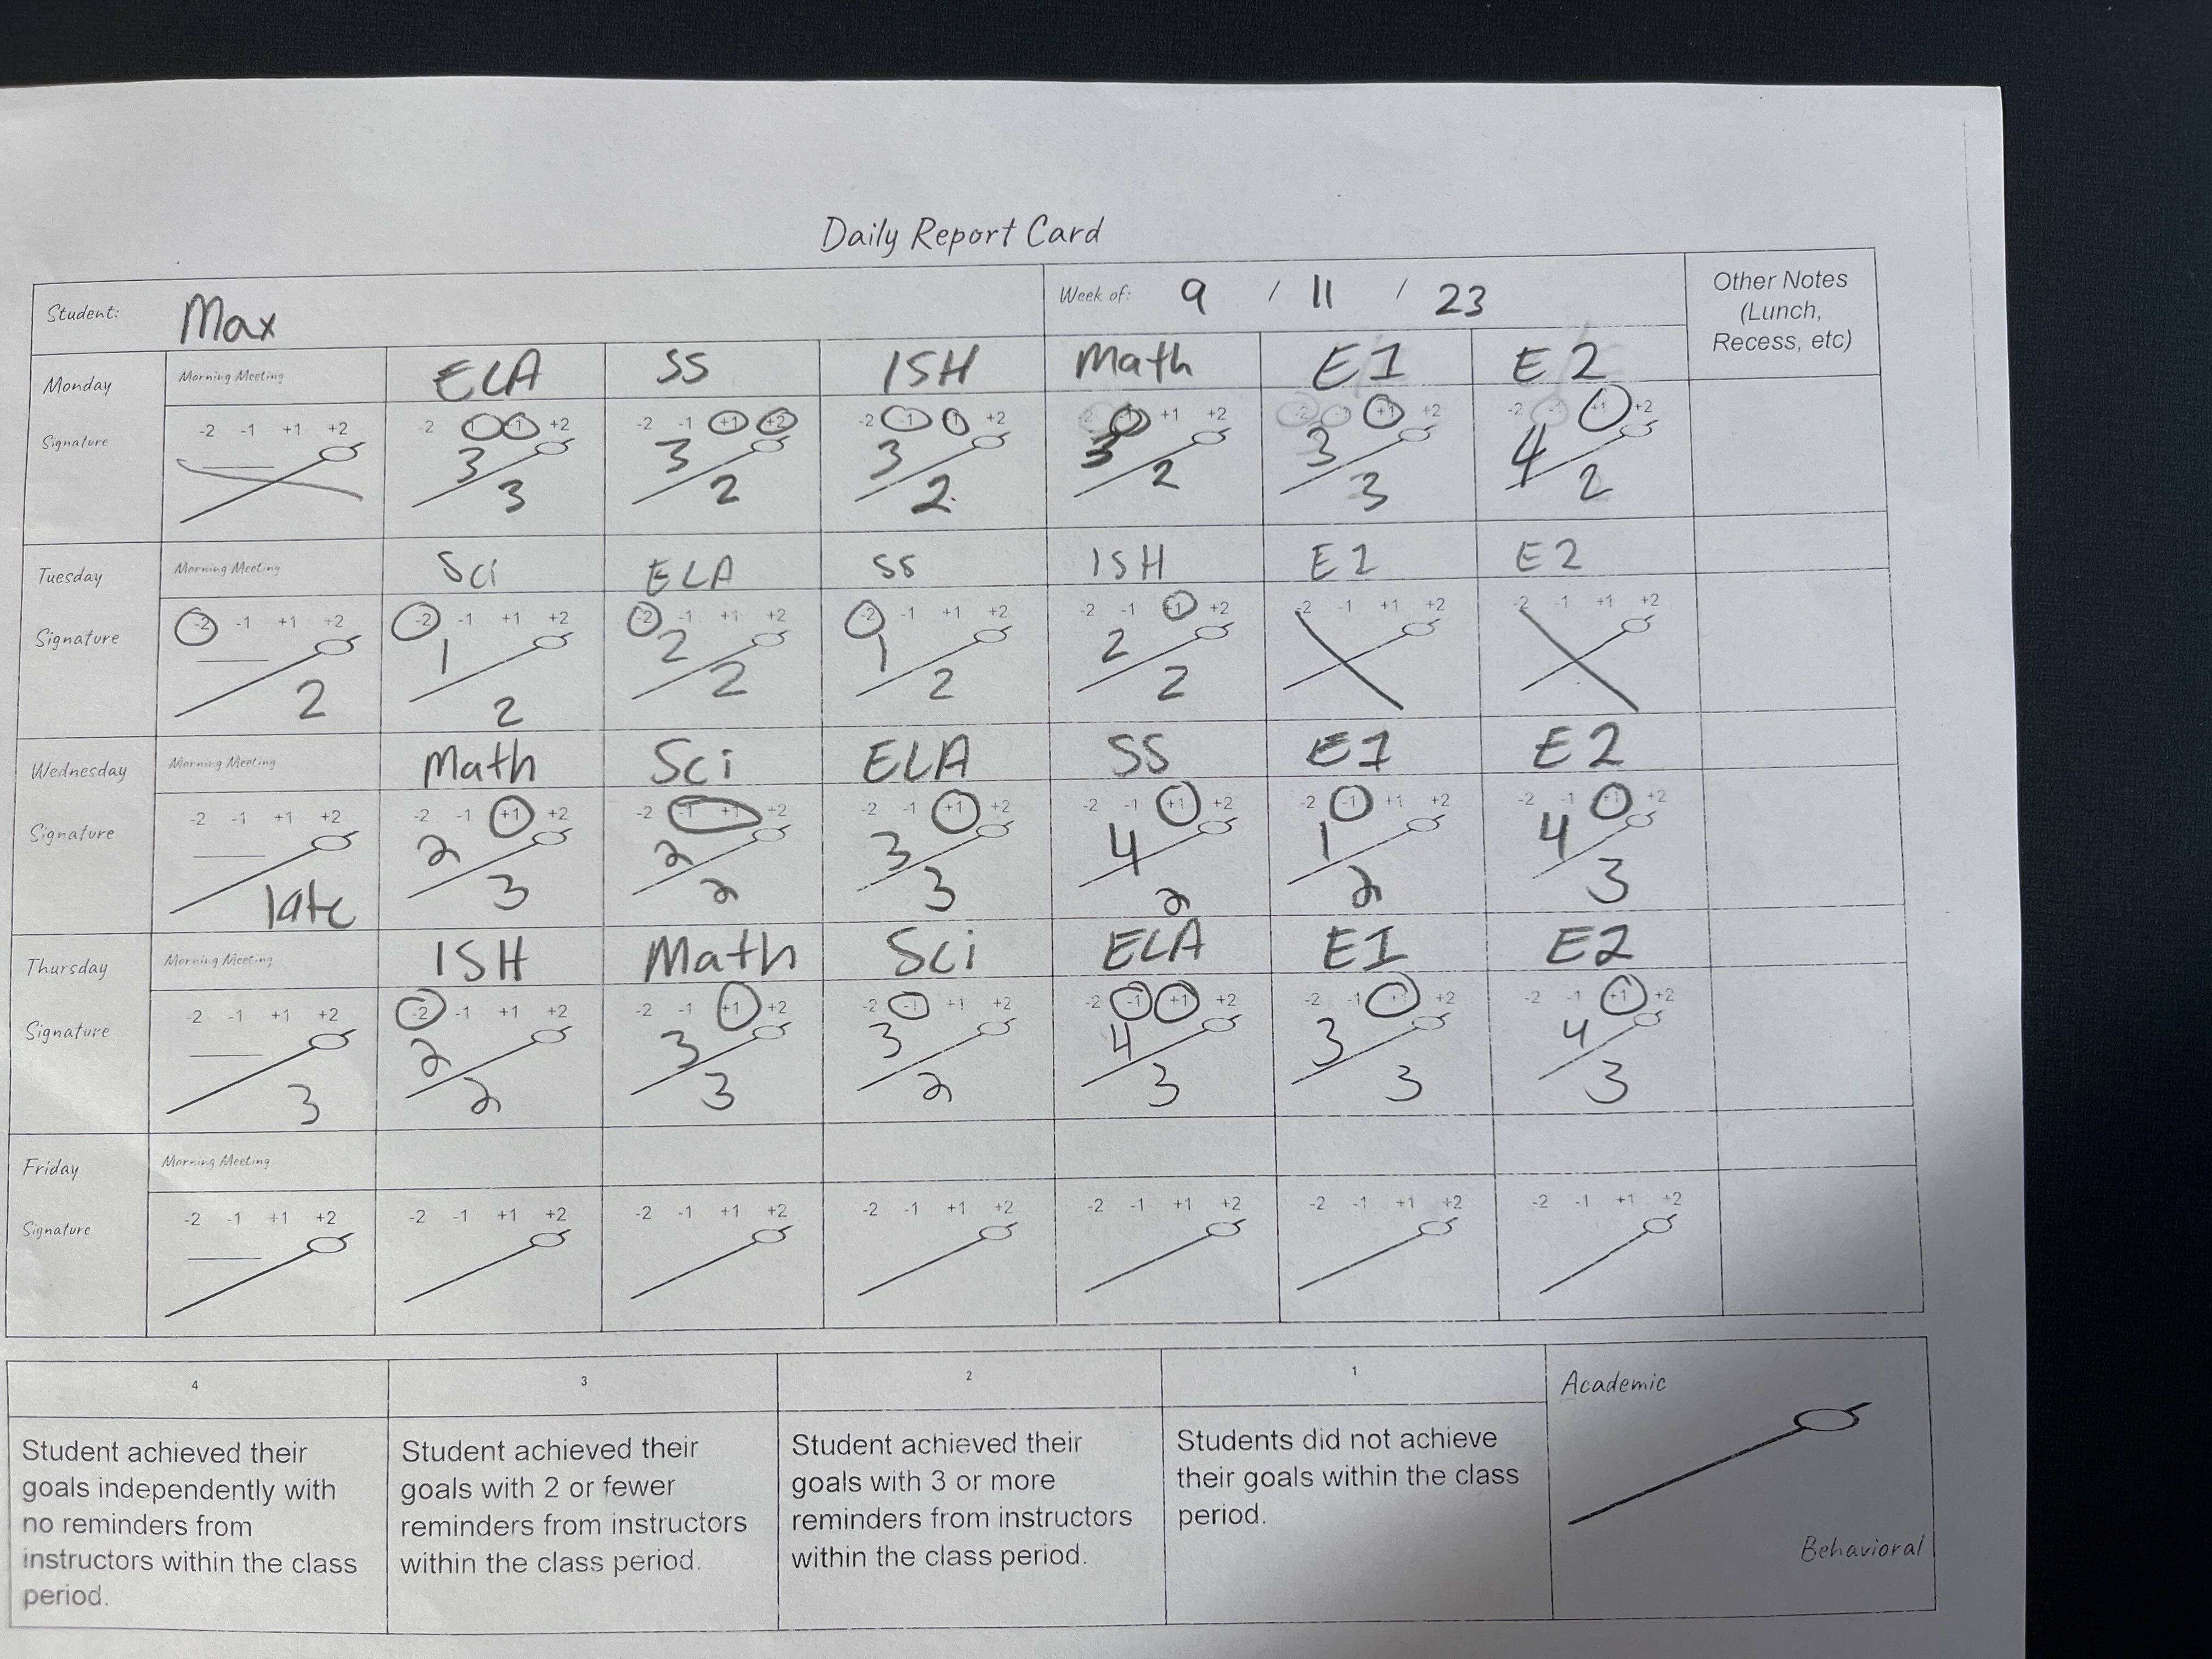 Daily Report Card
Student: Max Week of: 9 / 11 / 23 Other Notes
(Lunch,
Recess, etc)
Monday Morning Meeting ELA SS ISH Math E1 E2
Signature -2 -1 +1 +2 -2 -1 +1 +2 -2 -1 +1 +2 -2 -1 +1 +2 -2 -1 +1 +2 -2 -1 +1 +2 -2 -1 +1 +2
3 3 3 3 3 4
3 2 2 2 3 2
Tuesday Morning Meeting Sci ELA SS ISH E1 E2
Signature -2 -1 +1 +2 -2 -1 +1 +2 -2 -1 +1 +2 -2 -1 +1 +2 -2 -1 +1 +2 -2 -1 +1 +2 -2 -1 +1 +2
1 2 1 2
2 2 2 2 2
Wednesday Morning Meeting Math Sci ELA SS E1 E2
Signature -2 -1 +1 +2 -2 -1 +1 +2 -2 -1 +1 +2 -2 -1 +1 +2 -2 -1 +1 +2 -2 -1 +1 +2 -2 -1 +1 +2
2 2 3 4 1 4
late 3 2 3 2 2 3
Thursday Morning Meeting ISH Math Sci ELA E1 E2
Signature -2 -1 +1 +2 -2 -1 +1 +2 -2 -1 +1 +2 -2 -1 +1 +2 -2 -1 +1 +2 -2 -1 +1 +2 -2 -1 +1 +2
2 3 3 4 3 4
3 2 3 2 3 3 3
Friday Morning Meeting
Signature -2 -1 +1 +2 -2 -1 +1 +2 -2 -1 +1 +2 -2 -1 +1 +2 -2 -1 +1 +2 -2 -1 +1 +2 -2 -1 +1 +2
4 3 2 1 Academic
Student achieved their
goals independently with
no reminders from
instructors within the class
period.
Student achieved their
goals with 2 or fewer
reminders from instructors
within the class period.
Student achieved their
goals with 3 or more
reminders from instructors
within the class period.
Students did not achieve
their goals within the class
period.
Behavioral